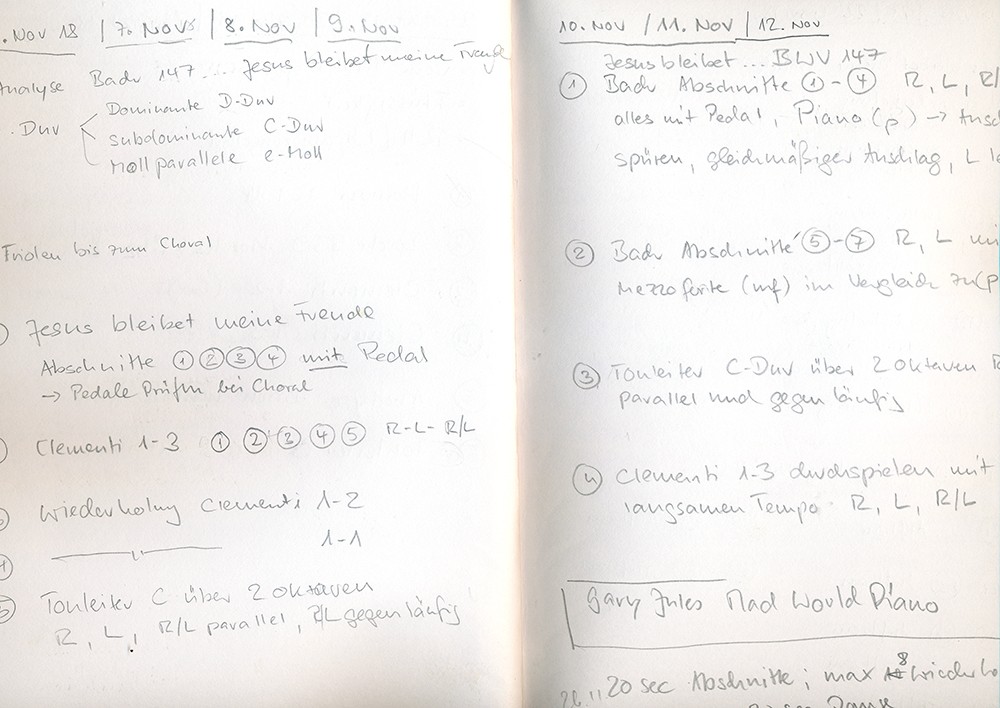 . Nov 18 | 7. Nov | 8. Nov | 9. Nov
Analyse Bach 147 ... Jesus bleibet meine Freude
. Dur
Dominante D-Dur
Subdominante C-Dur
Moll parallele e-Moll
Triolen bis zum Choral
Jesus bleibet meine Freude
Abschnitte ① ② ③ ④ mit Pedal
→ Pedale Prüfen bei Choral
Clementi 1-3 ① ② ③ ④ ⑤ R-L-R/L
Wiederholung Clementi 1-2
1-1
Tonleiter C über 2 Oktaven
R, L, R/L parallel, R/L gegenläufig
10. Nov / 11. Nov / 12. Nov
Jesus bleibet ... BWV 147
① Bach Abschnitte ①-④ R, L, R/
alles mit Pedal, Piano (p) →
spüren, gleichmäßiger Anschlag, L
② Bach Abschnitte ⑤-⑦ R, L
Mezzoforte (mf) im Vergleich zu (p
③ Tonleiter C-Dur über 2 Oktaven
parallel und gegenläufig
④ Clementi 1-3 durchspielen mit
langsamen Tempo R, L, R/L
Gary Jules Mad World Piano
20 sec Abschnitte; max 8 Wiederho